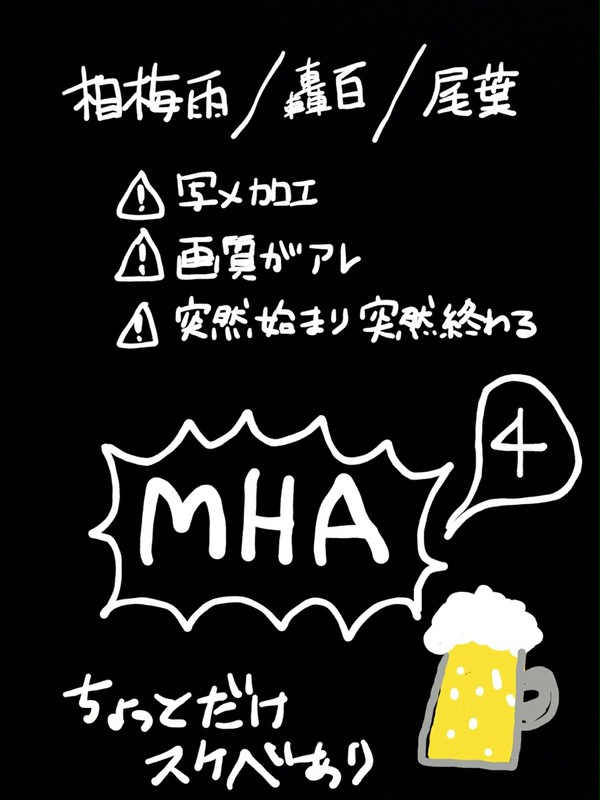 相梅雨/轟百/尾葉
⚠写メカロエ
⚠画質がアレ
⚠突然始まり突然終わる
4
MHA
ちょっとだけ
スケベあり